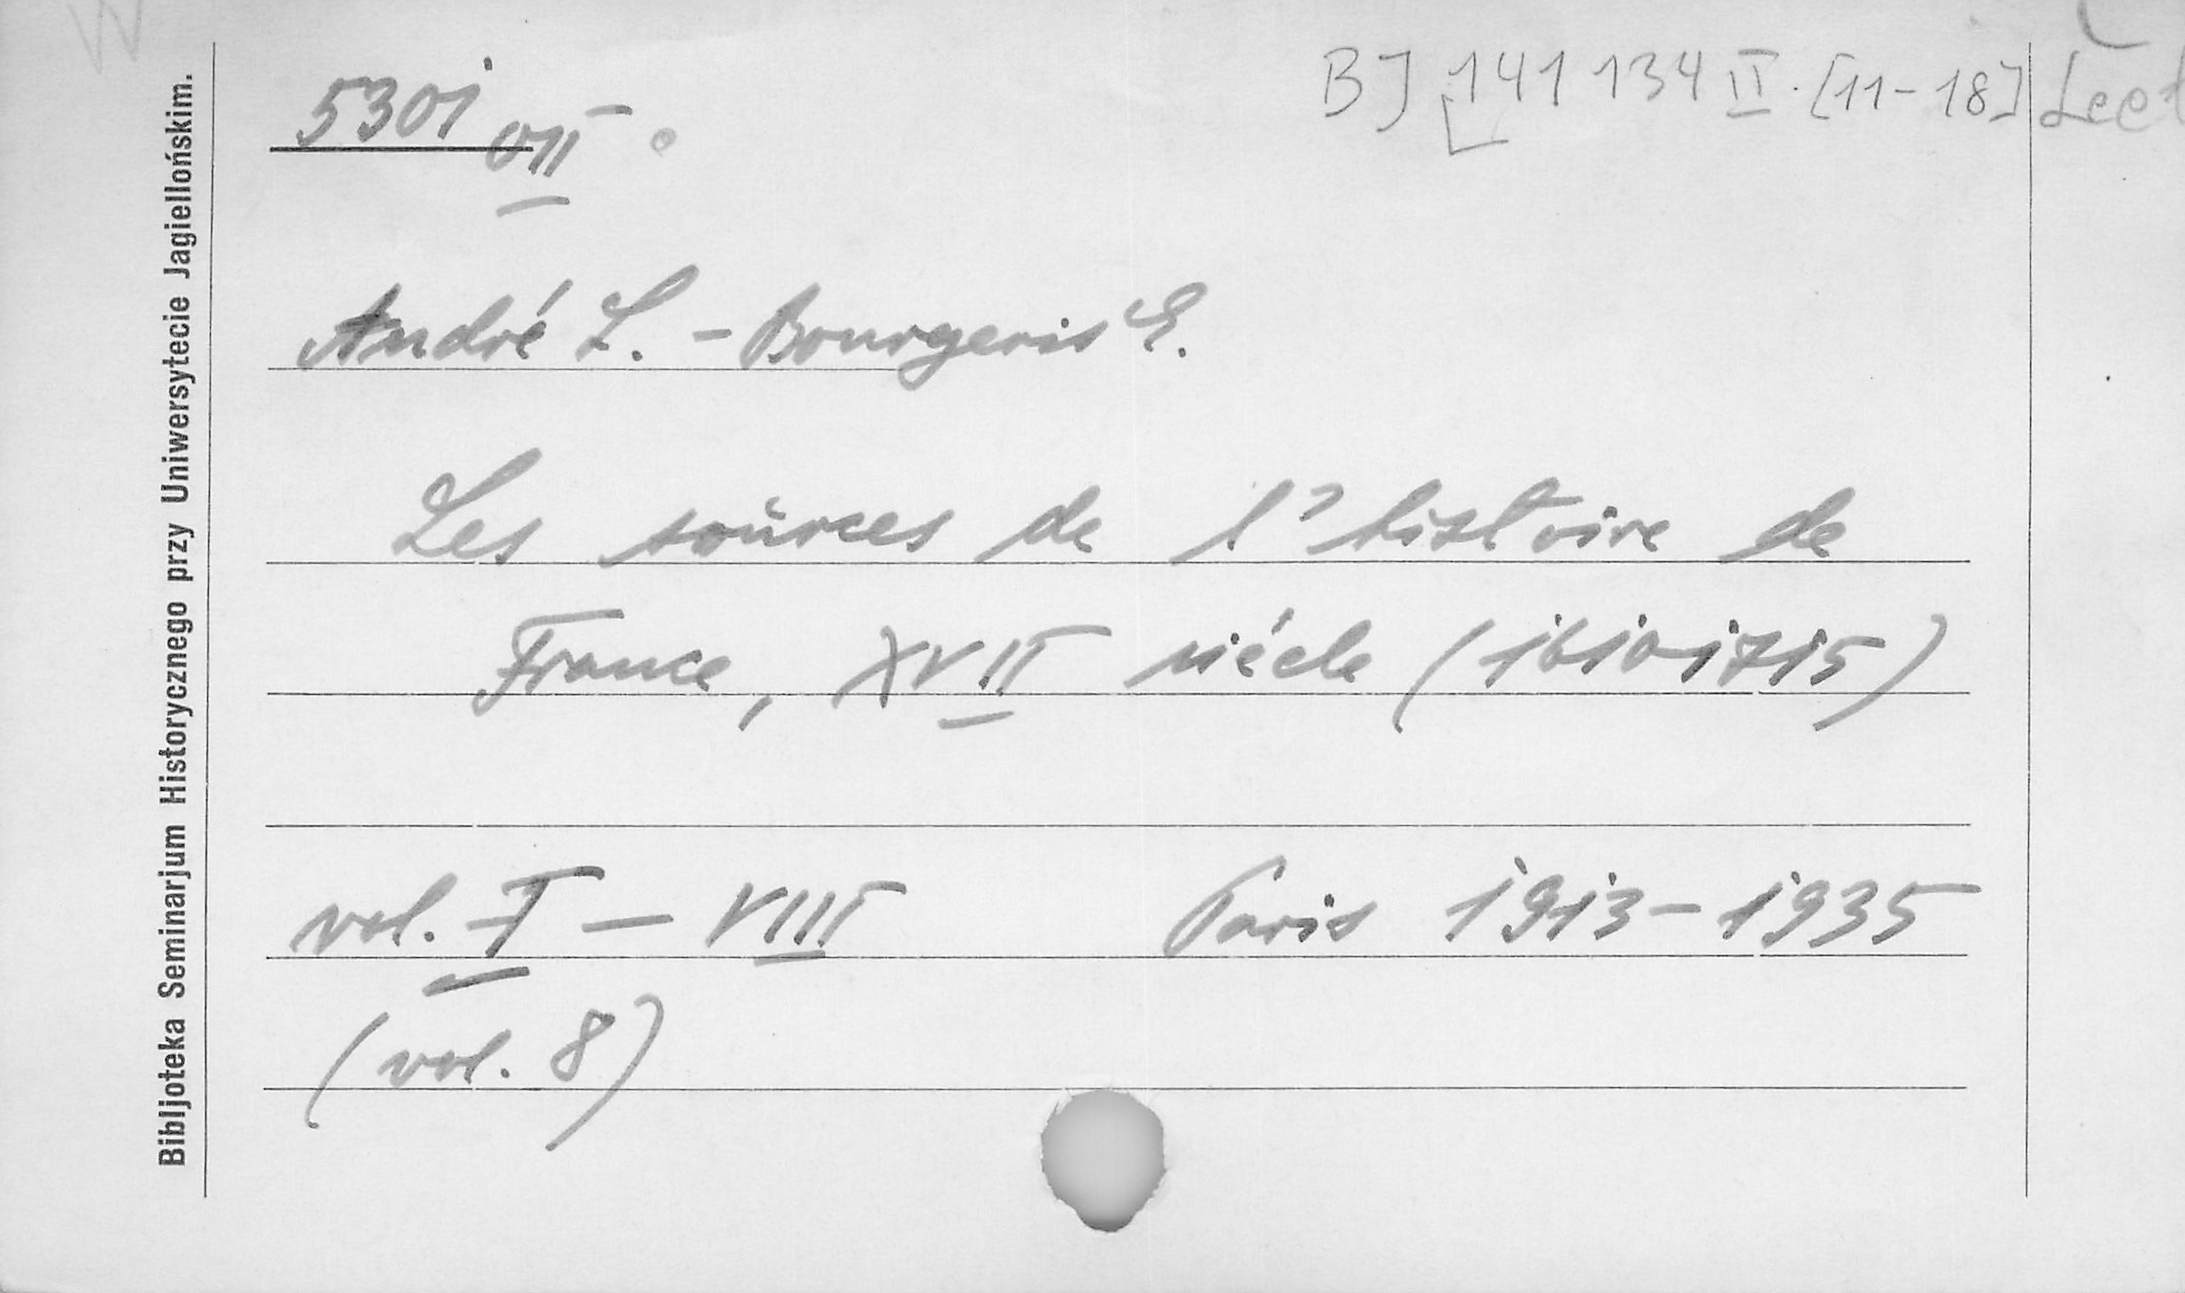 W
5301 OII
BJ 141 134 II. [11-18]
André L. - Bourgeois E.
Les sources de l'histoire de
France, XVII siécle (1610 1715)
vol. I - VIII Paris 1913-1935
(vol. 8)
Bibljoteka Seminarjum Historycznego przy Uniwersytecie Jagiellońskim.